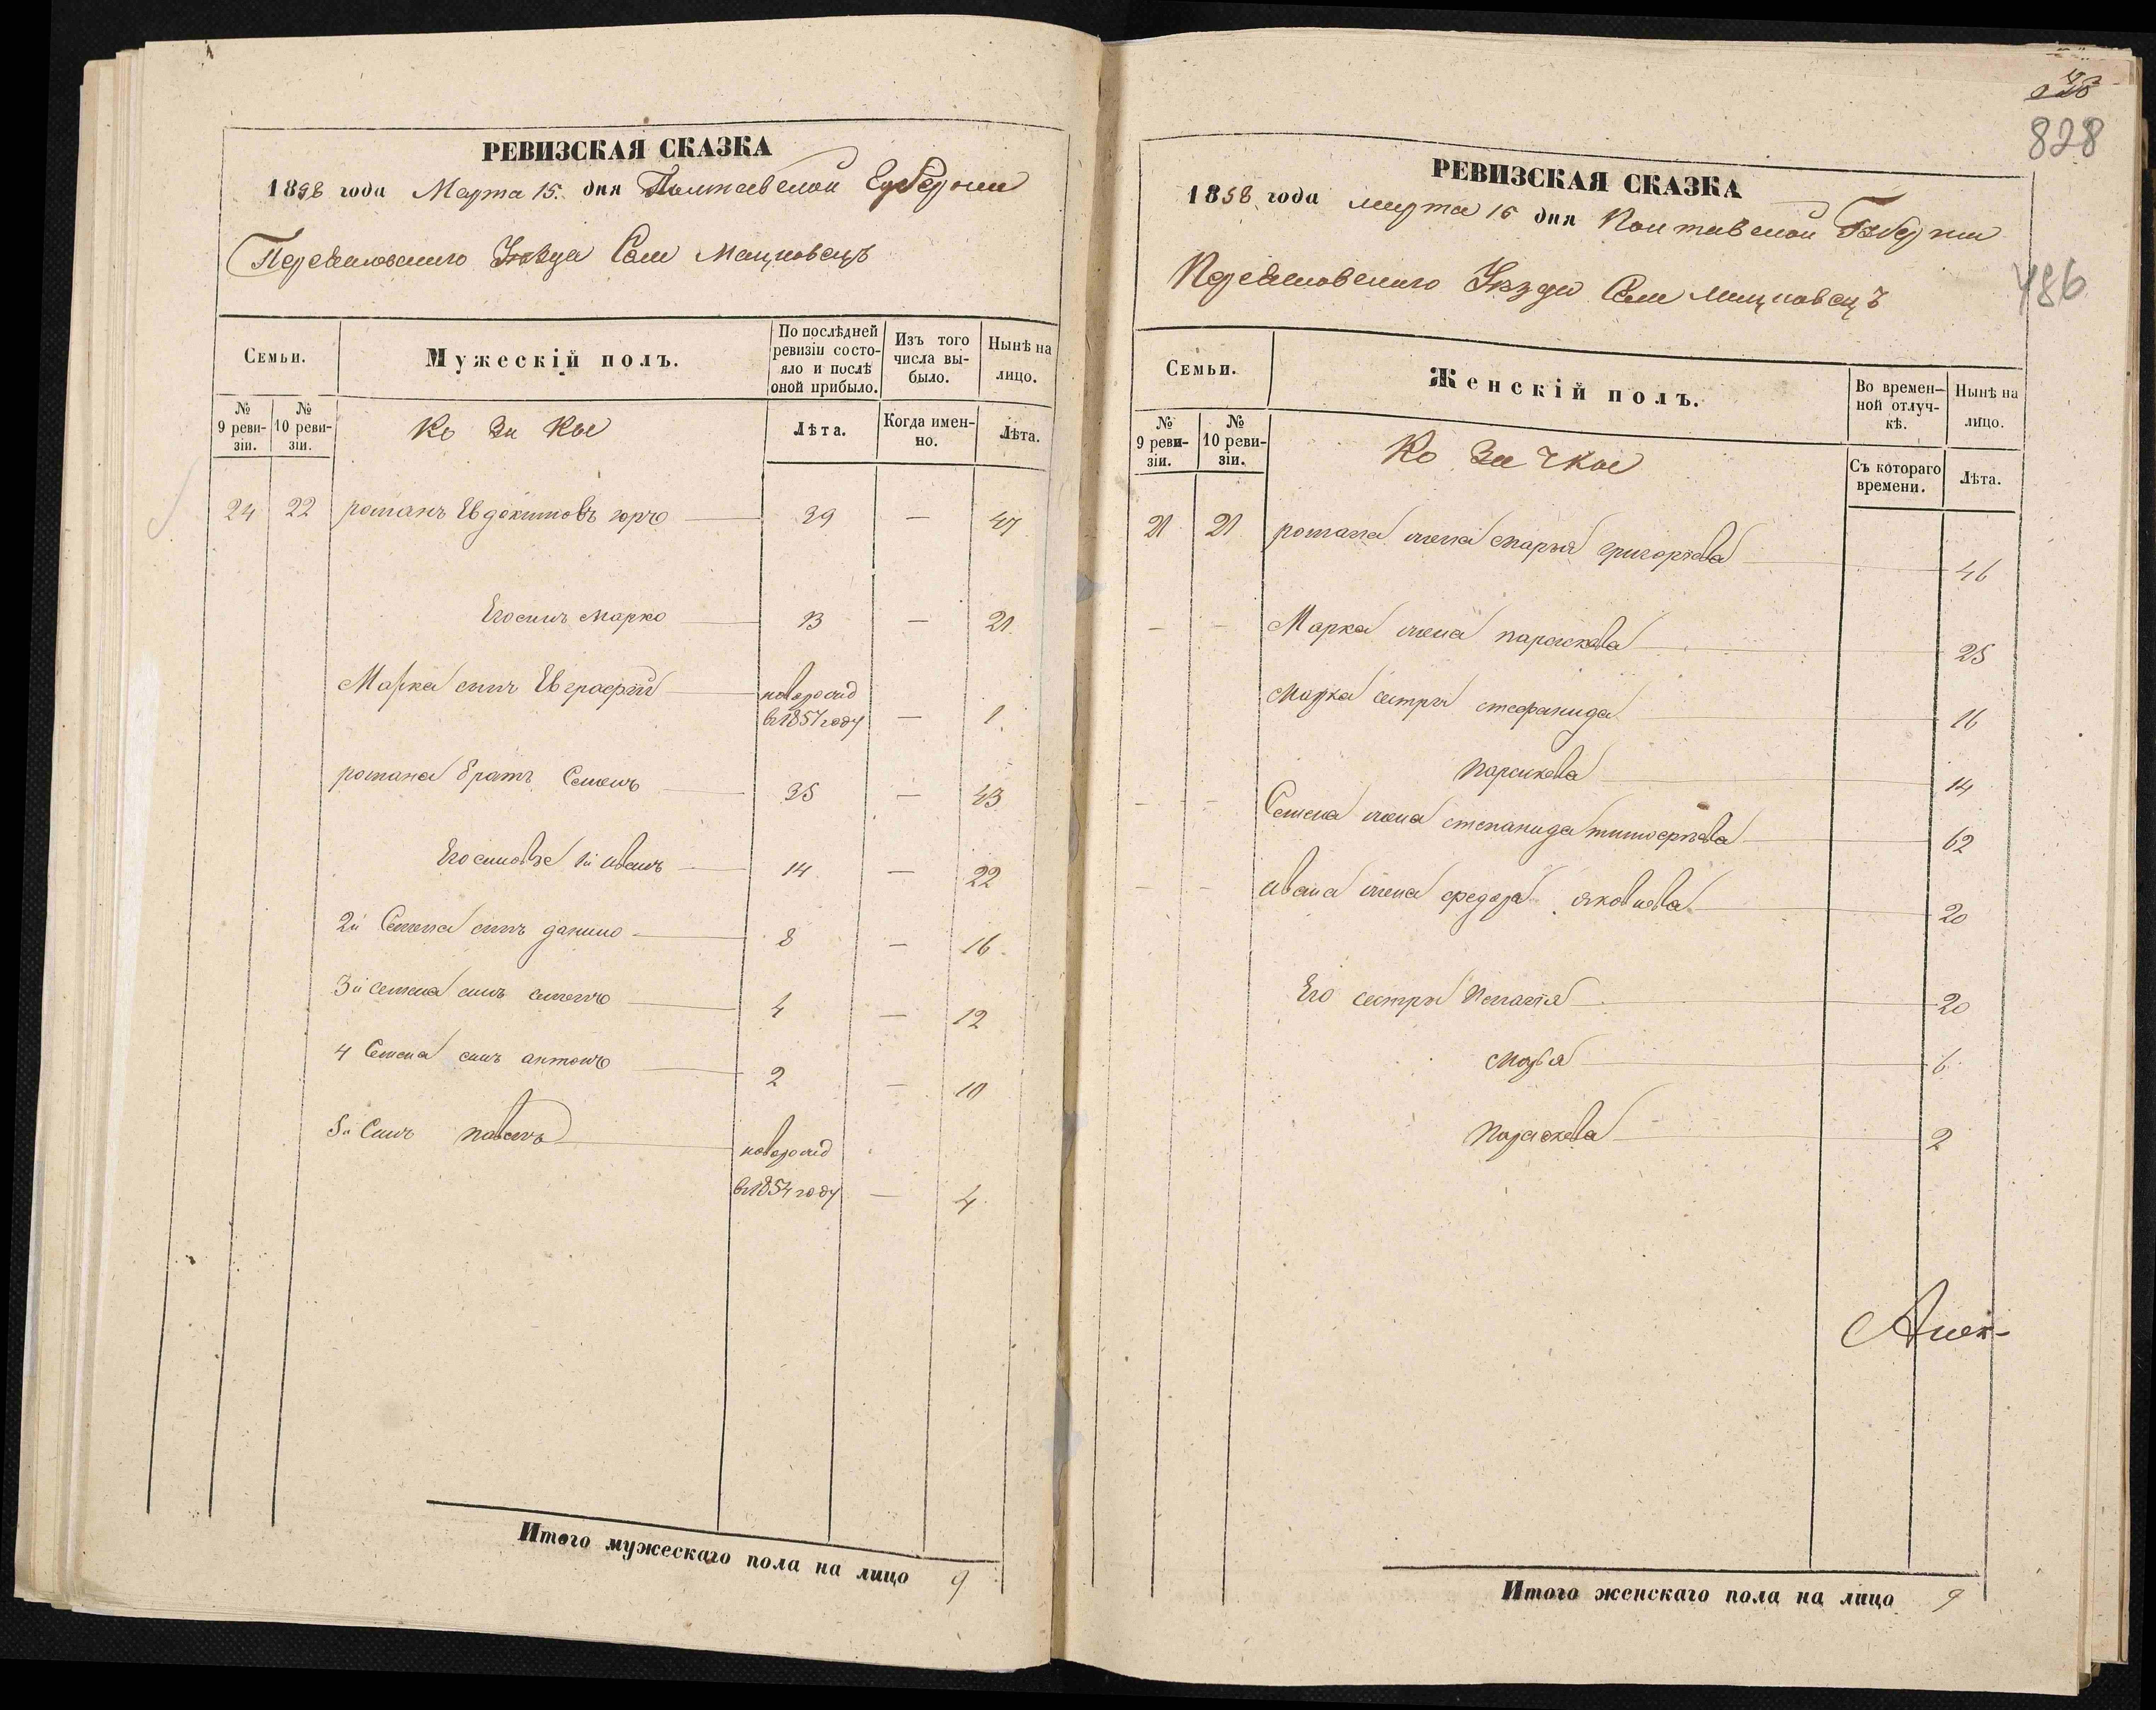 828
486
РЕВИЗСКАЯ СКАЗКА
1858 года Марта 15. дня Полтавской Губернии
Переясловского Уезда Села Мацковецъ
Семьи.
Мужескій полъ.
По послѣдней ревизіи состояло и послѣ оной прибыло.
Изъ того числа выбыло.
Нынѣ на лицо.
№ 9 ревизіи.
№ 10 ревизіи.
Ко за кы
Лѣта.
Когда именно.
Лѣта.
24 22 романъ Евдокимовъ 39 — 47
Его синъ Марко 13 — 21
Марка синъ Евграфій новорожд в 1857 году — 1
романа братъ Семенъ 35 — 43
Его синовье 1й иванъ 14 — 22
2й Семена синъ данило 8 — 16
3й семена синъ 4 — 12
4 Семена синъ антонъ 2 — 10
5й Синъ павелъ новорожд
в 1854 году — 4
Итого мужескаго пола на лицо 9
РЕВИЗСКАЯ СКАЗКА
1858 года марта 15 дня Полтавской Губернии
Переясловского Уезда Села Мацковецъ
Семьи.
Женскій полъ.
Во временной отлучкѣ.
Нынѣ на лицо.
№ 9 ревизіи.
№ 10 ревизіи.
Ко за чкы
Съ котораго времени.
Лѣта.
21 21 романа жена марья григорьева 46
— — Марка жена параскева 25
Марка сестры стефанида 16
параскева 14
— — Семена жена степанида тимофеева 62
— — ивана жена федора яковлева 20
Его сестры Пелагія 20
марья 6
Параскева 2
Алек-
Итого женскаго пола на лицо 9